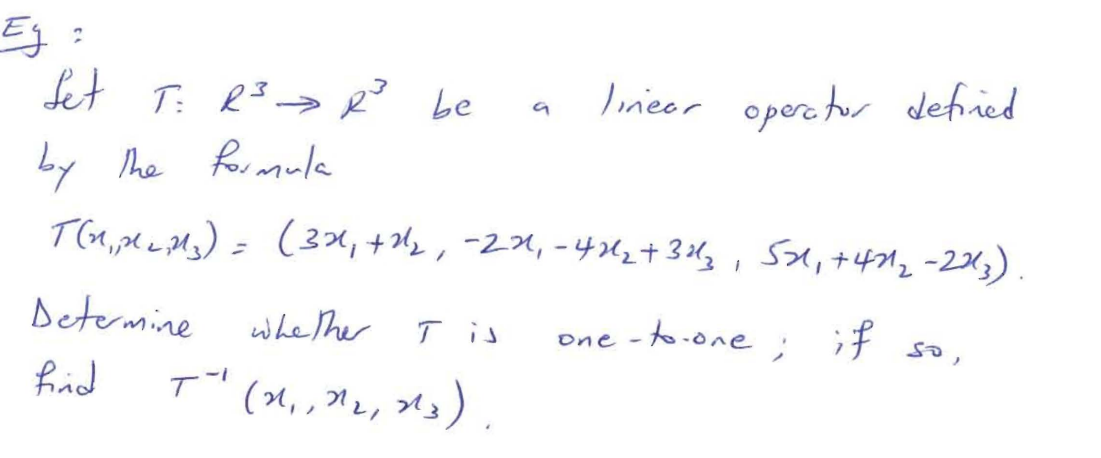 Eg :
Let T: R³ → R³ be a linear operator defined
by the formula
T(x₁,x₂,x₃) = (3x₁+x₂, -2x₁-4x₂+3x₃, 5x₁+4x₂-2x₃).
Determine whether T is one-to-one; if so,
find T⁻¹(x₁,x₂,x₃).